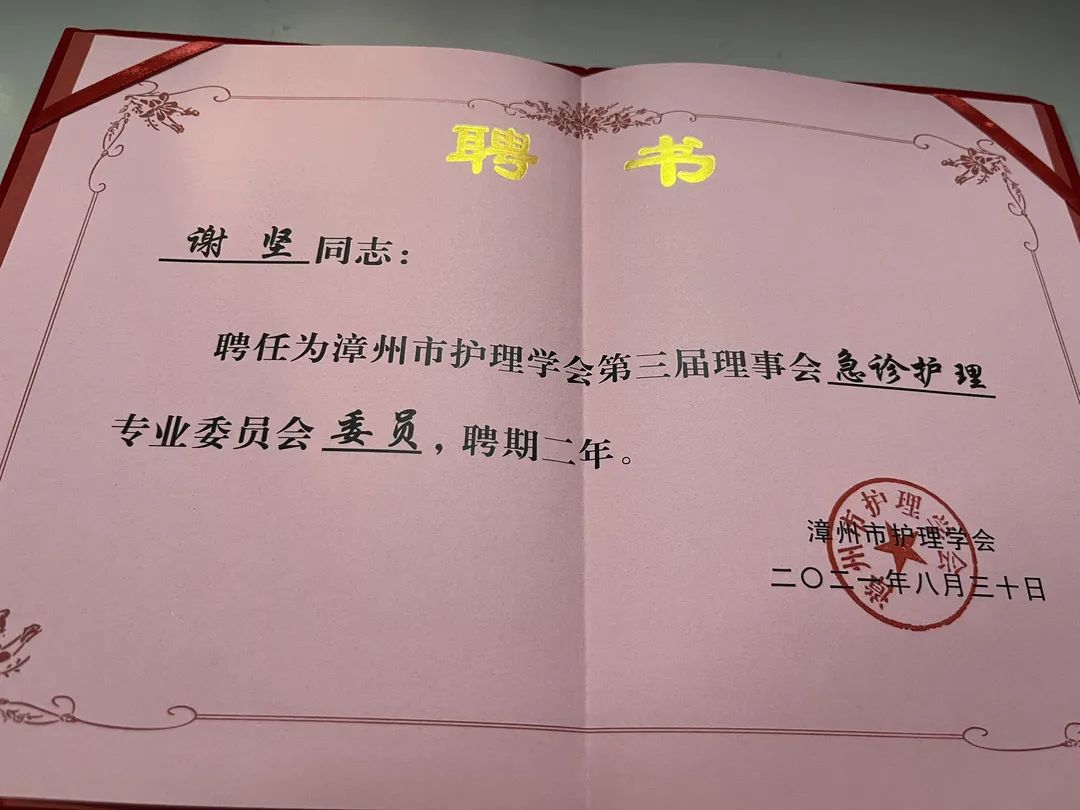 聘 书
谢坚同志：
聘任为漳州市护理学会第三届理事会急诊护理
专业委员会委员，聘期二年。
漳州市护理学会
漳州市护理学会
二〇二一年八月三十日